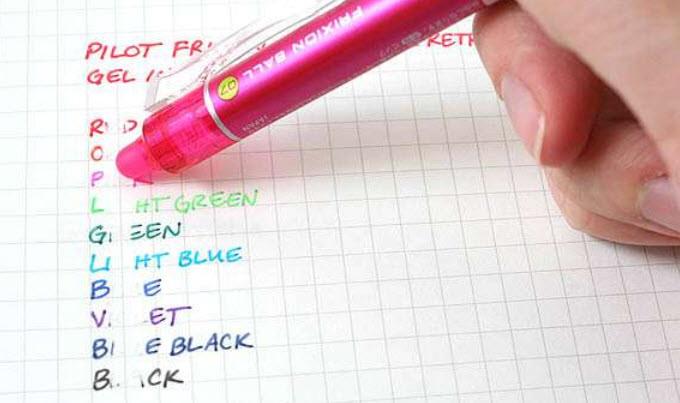 PILOT FRI RETR
GEL I
R D
O
P
L HT GREEN
G EEN
LI HT BLUE
B E
V ET
BL E BLACK
B CK
FRIXION BALL
07
JAPAN